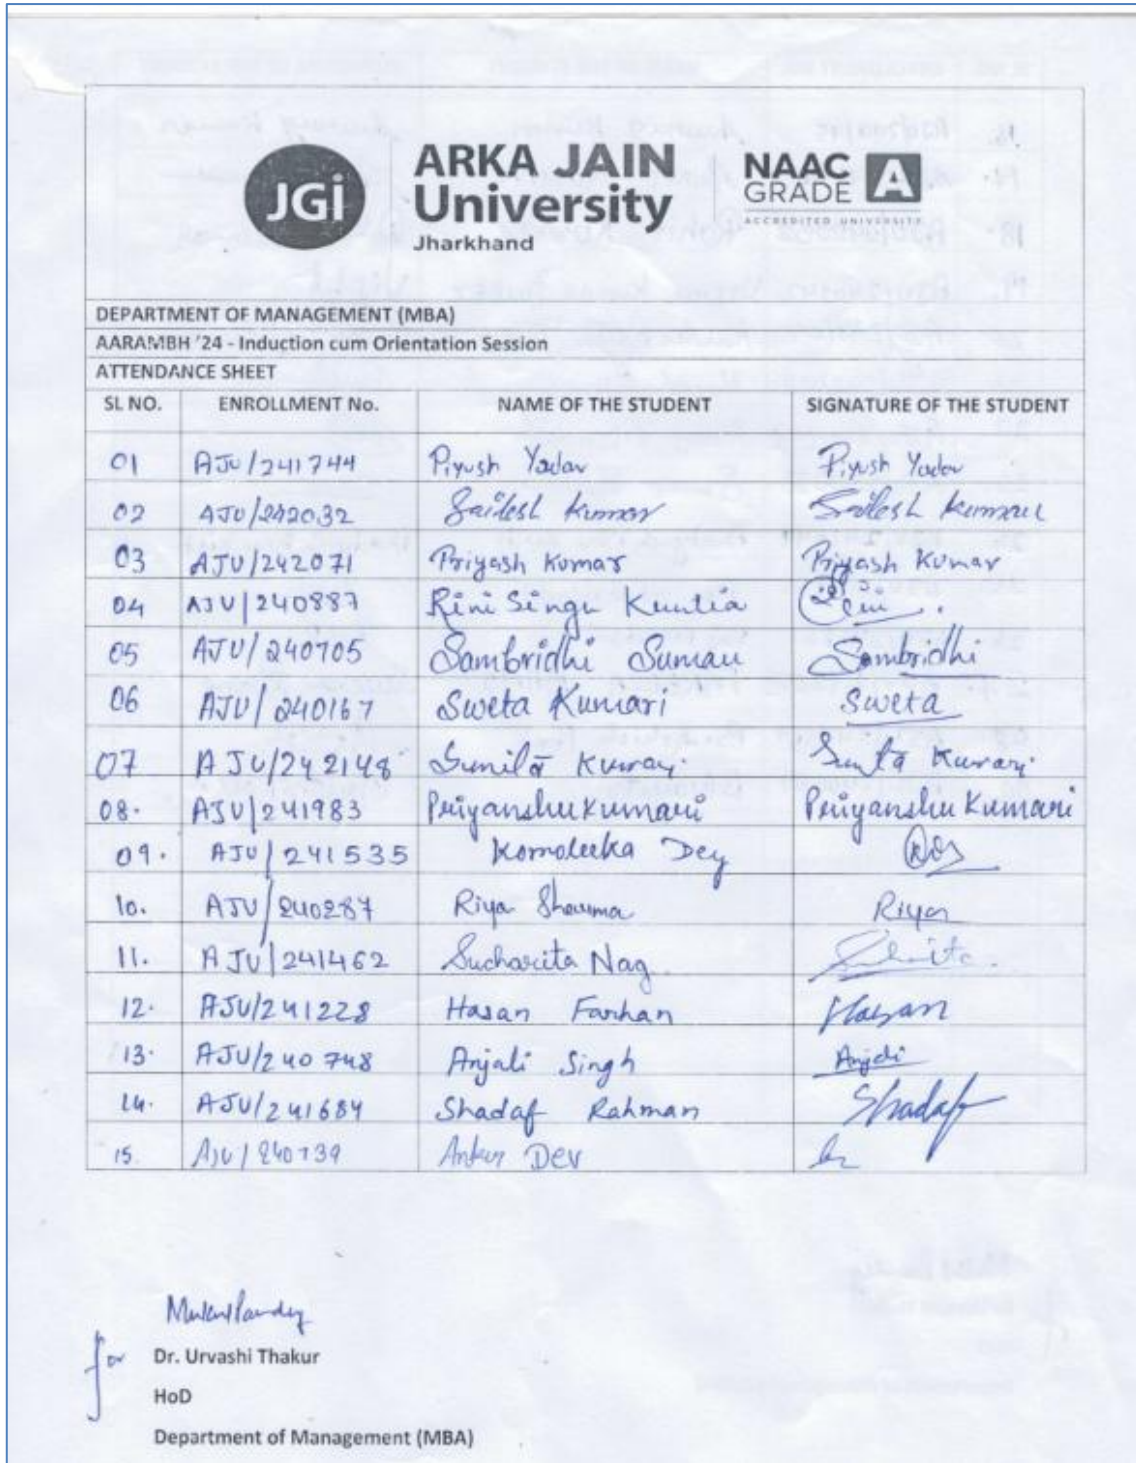 JGi
ARKA JAIN
University
Jharkhand
NAAC
GRADE A
ACCREDITED UNIVERSITY
DEPARTMENT OF MANAGEMENT (MBA)
AARAMBH '24 - Induction cum Orientation Session
ATTENDANCE SHEET
SL NO. ENROLLMENT No. NAME OF THE STUDENT SIGNATURE OF THE STUDENT
01 AJU/241744 Piyush Yadav Piyush Yadav
02 AJU/242032 Sailesh Kumar Sailesh Kumar
03 AJU/242071 Priyash Kumar Priyash Kumar
04 AJU/240887 Rini Singh Kuntia
05 AJU/240705 Sambridhi Suman Sambridhi
06 AJU/240167 Sweta Kumari Sweta
07 AJU/242148 Sunita Kumari Sunita Kumari
08. AJU/241983 Priyanshu Kumari Priyanshu Kumari
09. AJU/241535 Komoleeka Dey
10. AJU/240287 Riya Sharma Riya
11. AJU/241462 Sucharita Nag
12. AJU/241228 Hasan Farhan Hasan
13. AJU/240748 Anjali Singh Anjali
14. AJU/241684 Shadaf Rahman Shadaf
15. AJU/240739 Ankur Dev
for Dr. Urvashi Thakur
HoD
Department of Management (MBA)